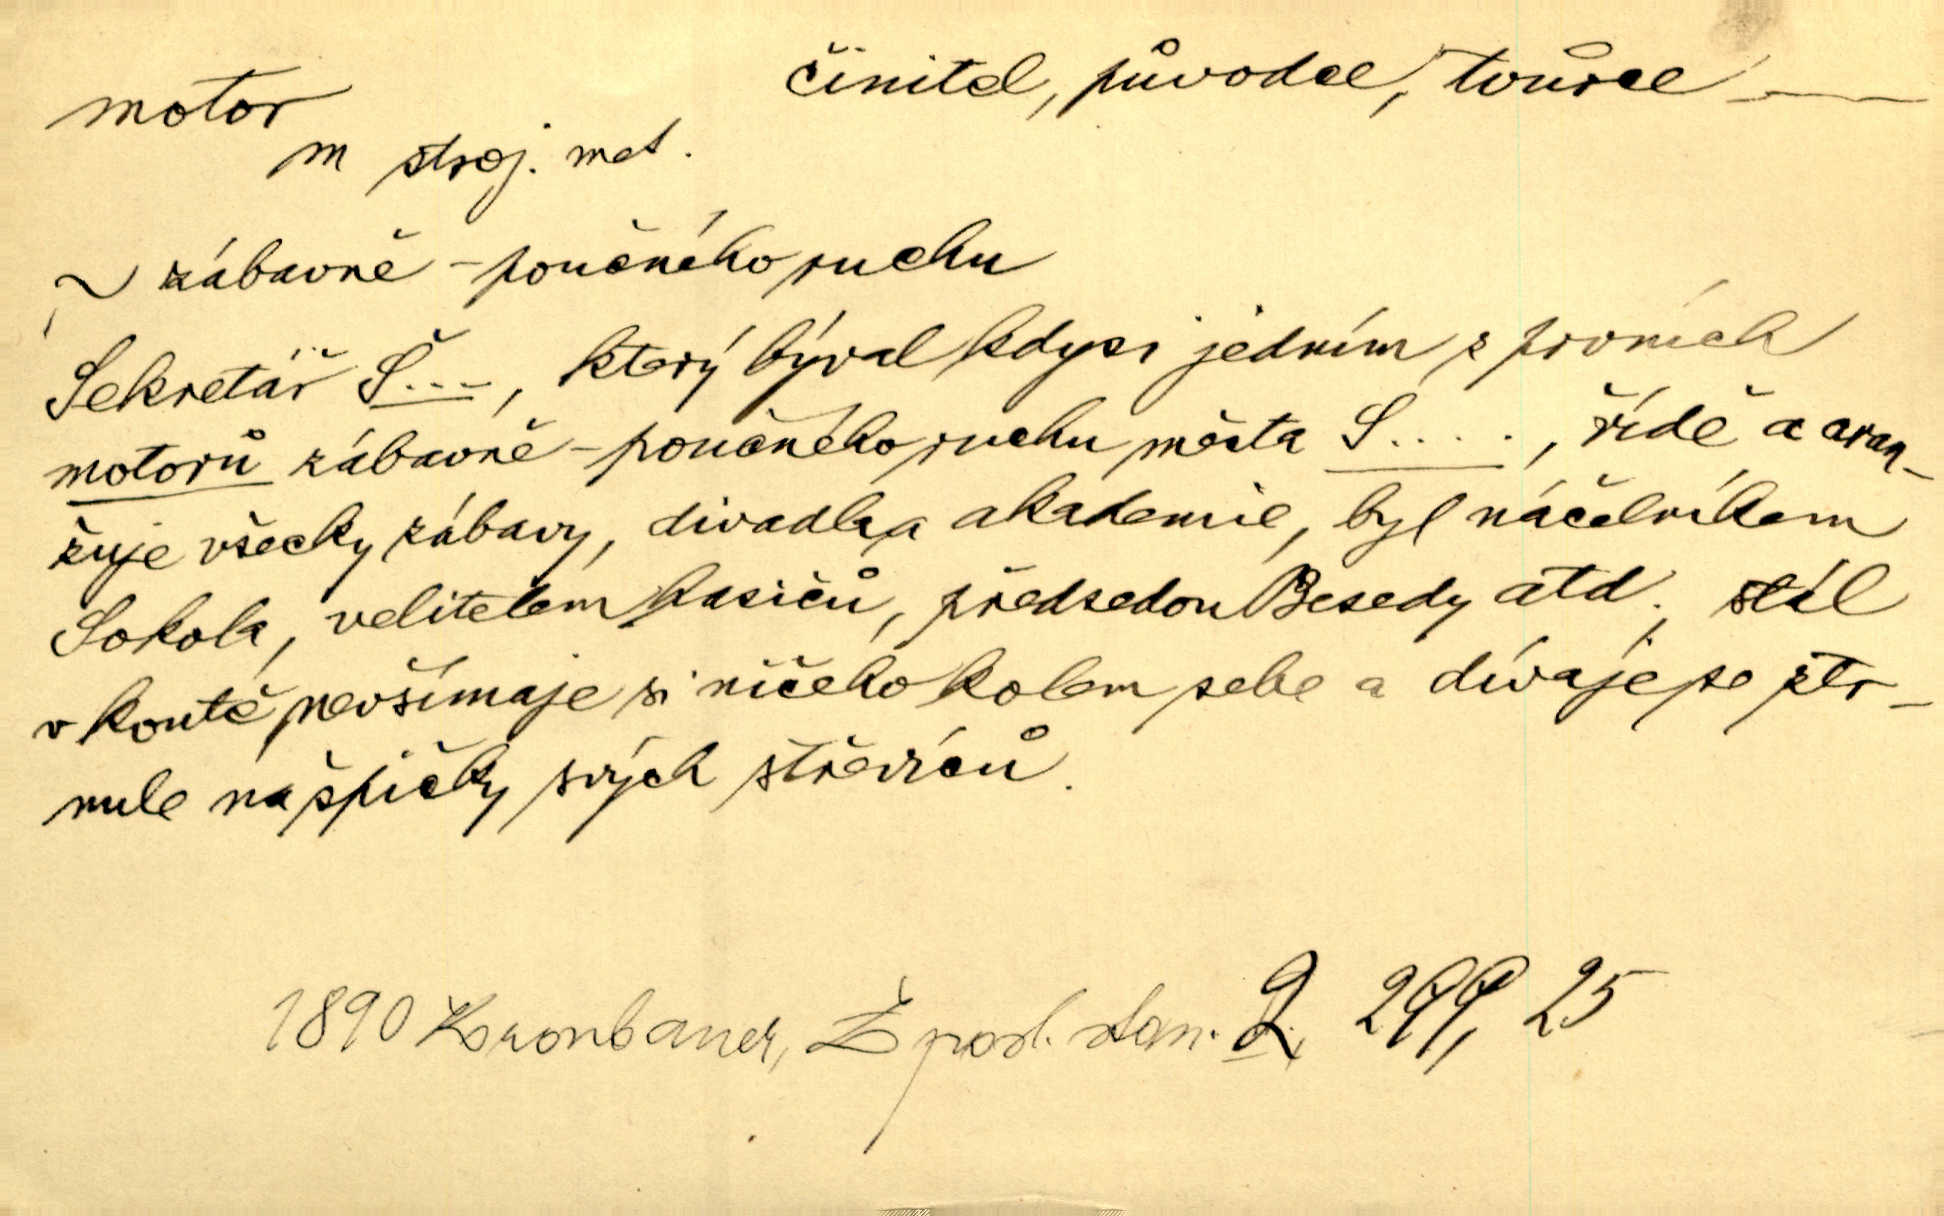 motor
činitel, původce, tvůrce —
m stroj. met.
~ zábavně-poučného ruchu
Sekretář Š..., který býval kdysi jedním z prvních
motorů zábavně-poučného ruchu města S....., řídě a aran-
žuje všecky zábavy, divadla a akademie, byl náčelníkem
Sokola, velitelem hasičů, předsedou Besedy atd., stál
v koutě nevšímaje si ničeho kolem sebe a dívaje se ztr-
nule na špičky svých střevíců.
1890 Kronbauer, Z posl. stan. 2, 299, 25